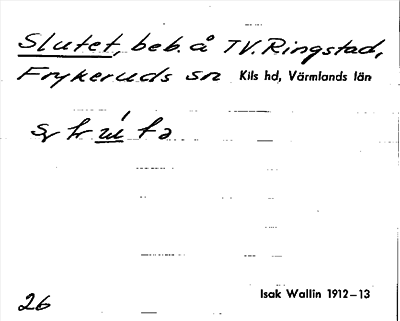 Slutet, beb. å TV. Ringstad,
Frykeruds sn Kils hd, Värmlands län
26
Isak Wallin 1912–13